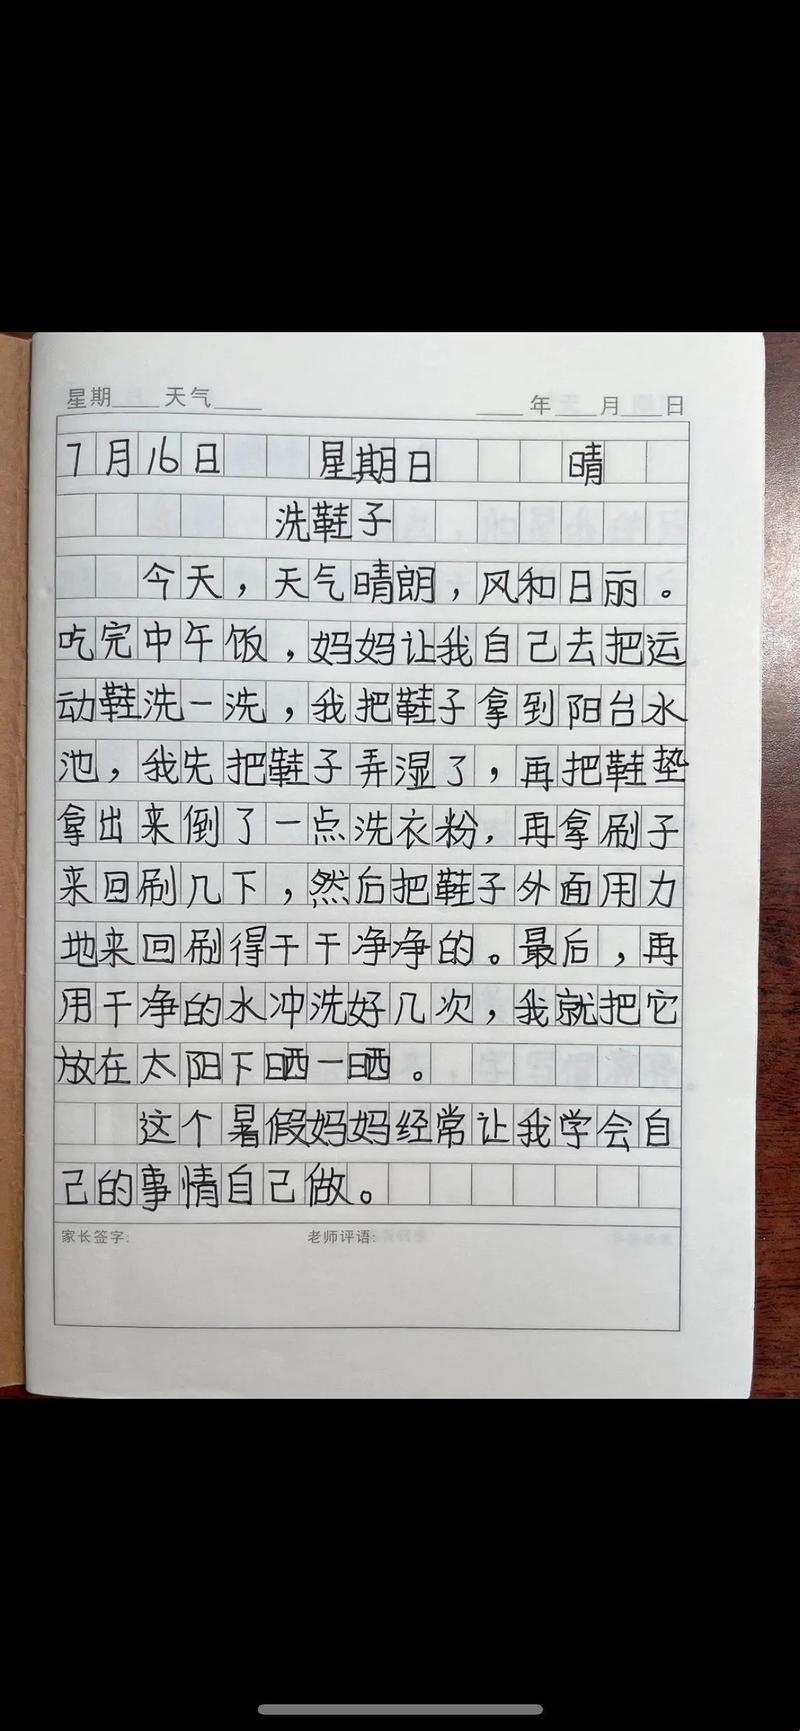 星期____天气____ ____年____月____日
7月16日 星期日 晴
洗鞋子
今天，天气晴朗，风和日丽。
吃完中午饭，妈妈让我自己去把运
动鞋洗一洗，我把鞋子拿到阳台水
池，我先把鞋子弄湿了，再把鞋垫
拿出来倒了一点洗衣粉，再拿刷子
来回刷几下，然后把鞋子外面用力
地来回刷得干干净净的。最后，再
用干净的水冲洗好几次，我就把它
放在太阳下晒一晒。
这个暑假妈妈经常让我学会自
己的事情自己做。
家长签字: 老师评语: